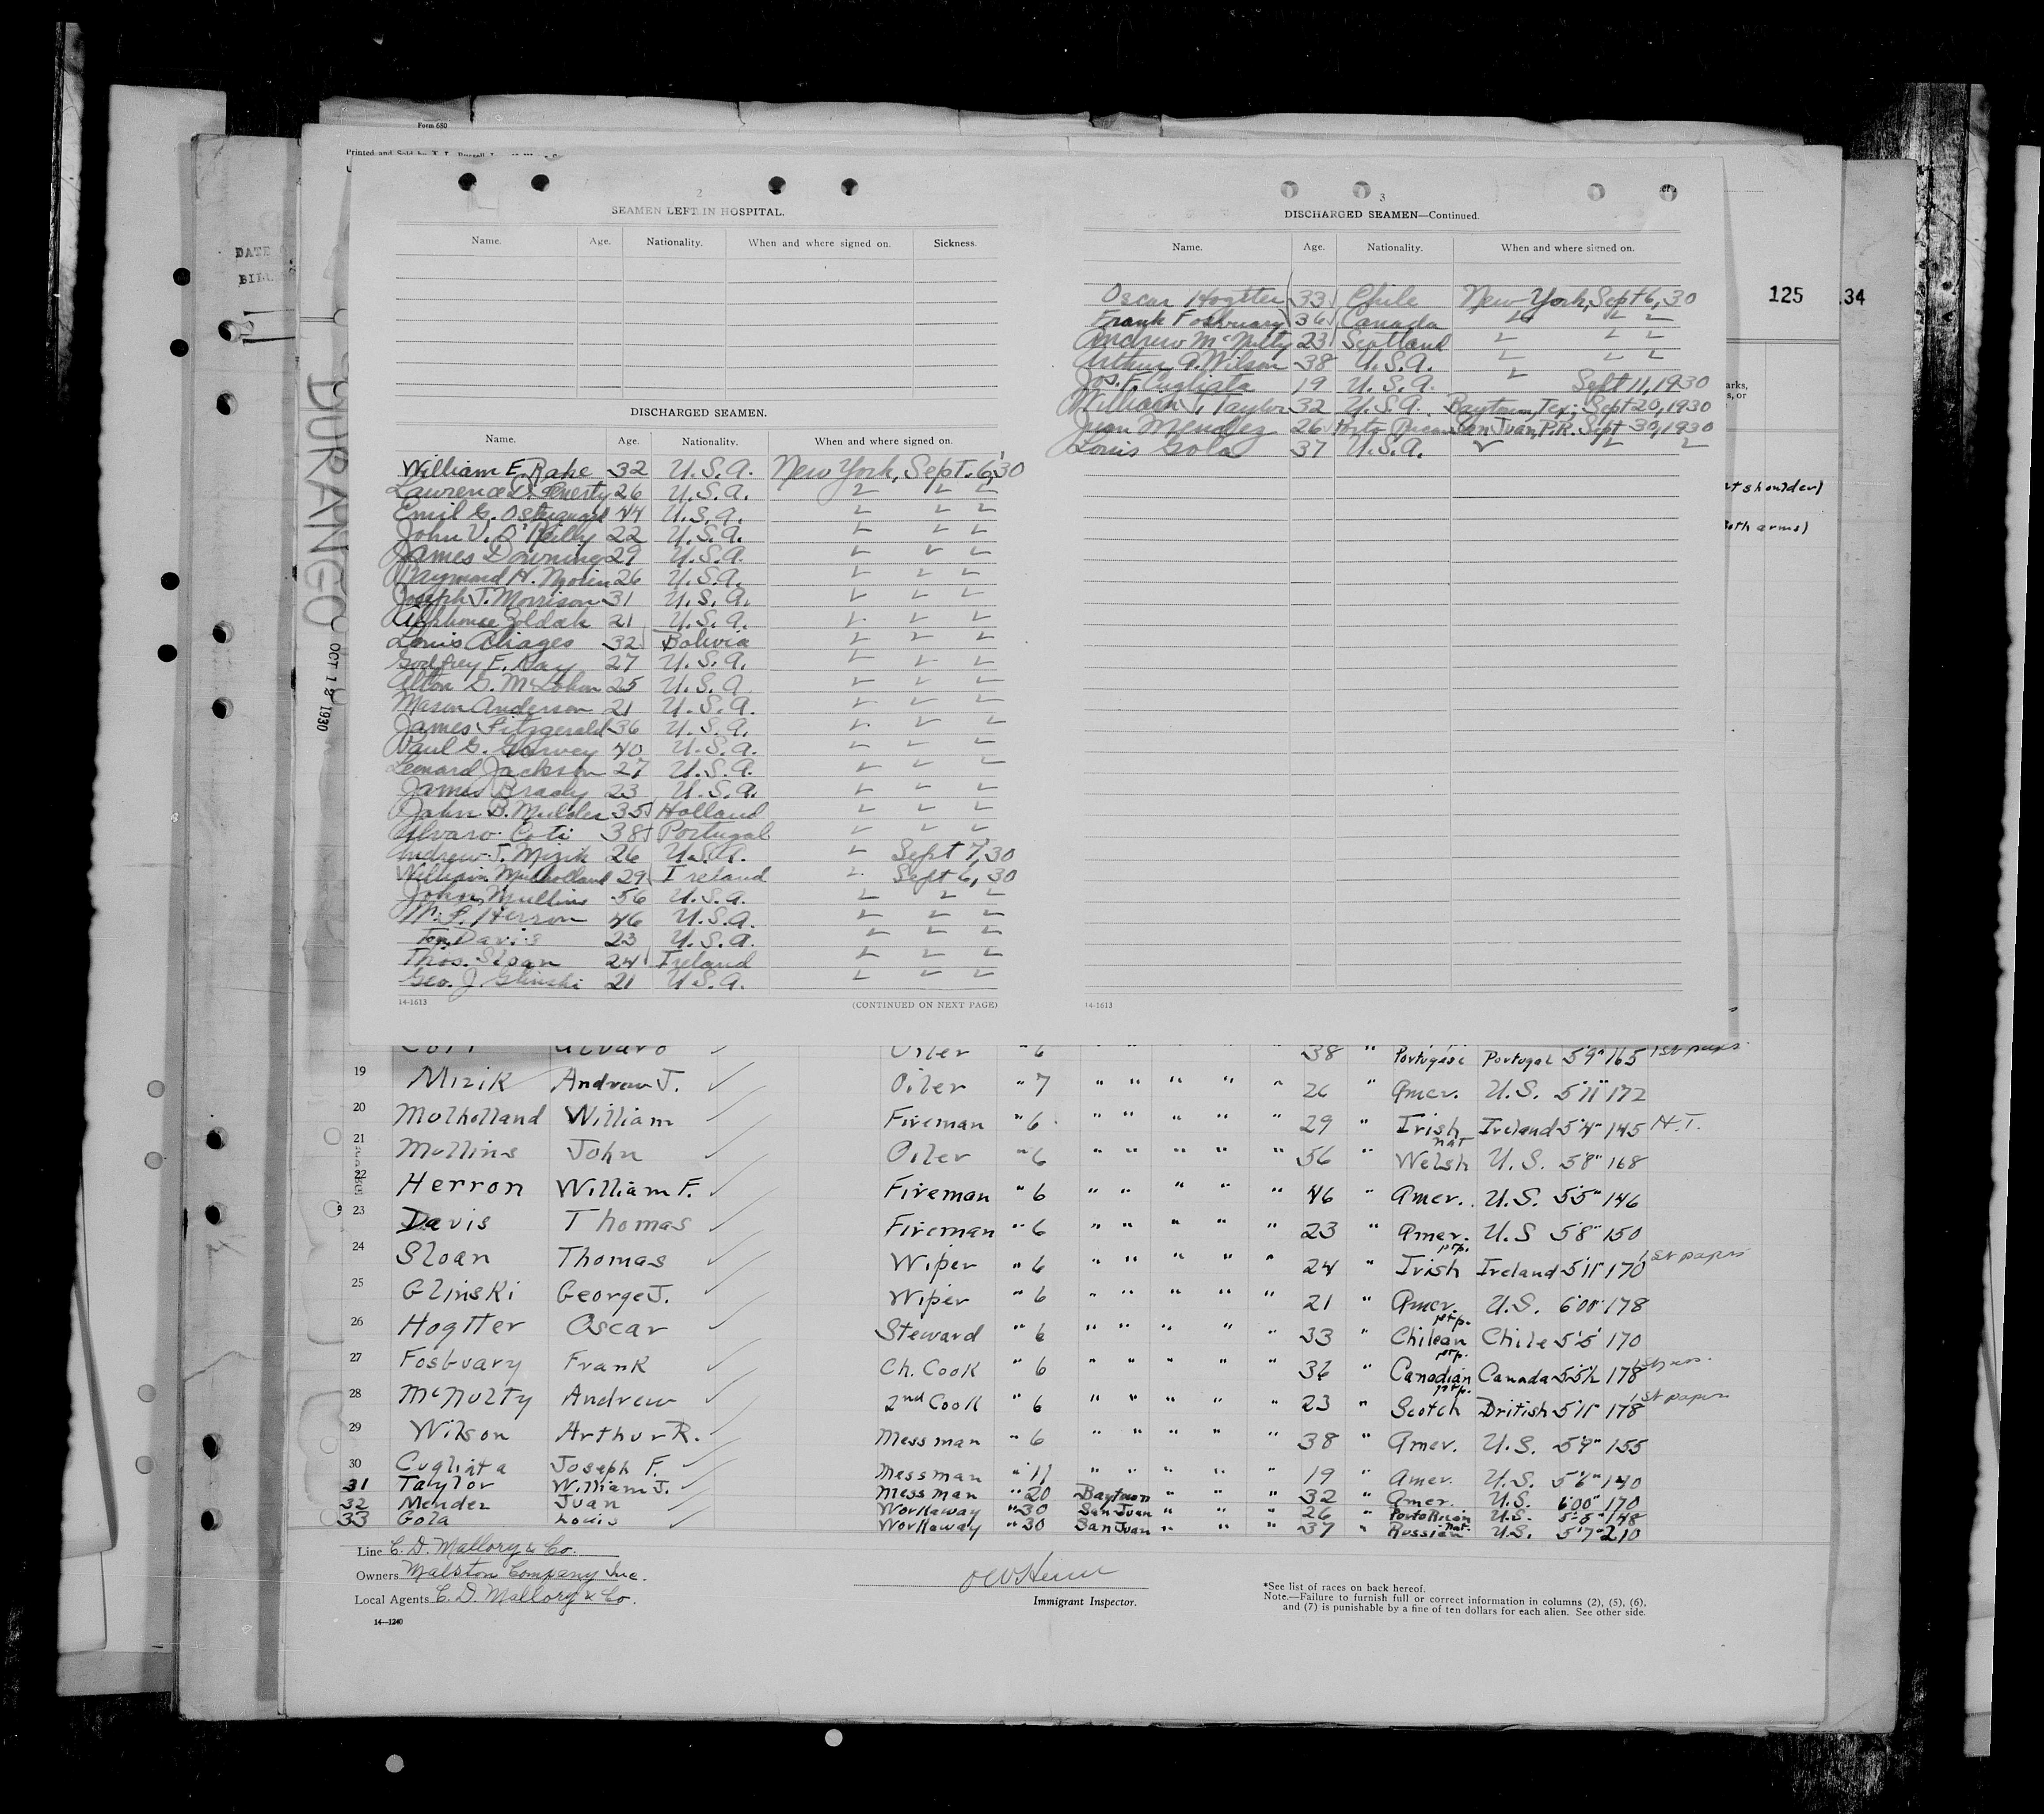 Form 680
DATE
BILL
DURANGO
OCT 1 1930
125
34
2
SEAMEN LEFT IN HOSPITAL.
Name. Age. Nationality. When and where signed on. Sickness.
DISCHARGED SEAMEN.
Name. Age. Nationality. When and where signed on.
William E. Rake 32 U.S.A. New York, Sept. 6, 30
Lawrence D. 26 U.S.A. " " "
Emil G. 44 U.S.A. " " "
John V. O'Reilly 22 U.S.A. " " "
James Downing 29 U.S.A. " " "
Raymond H. Morin 26 U.S.A. " " "
Joseph J. Morrison 31 U.S.A. " " "
Alphonse Zoldak 21 U.S.A. " " "
Louis Aliages 32 Bolivia " " "
Godfrey E. Day 27 U.S.A. " " "
Alton G. 25 U.S.A. " " "
Mason Anderson 21 U.S.A. " " "
James Fitzgerald 36 U.S.A. " " "
Paul G. Garvey 40 U.S.A. " " "
Leonard Jackson 27 U.S.A. " " "
James Brady 23 U.S.A. " " "
John B. Mulder 35 Holland " " "
Alvaro Coti 38 Portugal " " "
Andrew J. Mizik 26 U.S.A. " Sept 7, 30
William Mulholland 29 Ireland " Sept 6, 30
John Mullins 56 U.S.A. " " "
Wm. F. Herron 46 U.S.A. " " "
Tom Davis 23 U.S.A. " " "
Thos. Sloan 24 Ireland " " "
Geo. J. Glinski 21 U.S.A. " " "
14-1613 (CONTINUED ON NEXT PAGE)
3
DISCHARGED SEAMEN—Continued.
Name. Age. Nationality. When and where signed on.
Oscar Hogtter 33 Chile New York, Sept 6, 30
Frank Fosbuary 36 Canada " " "
Andrew McNulty 23 Scotland " " "
Arthur R. Wilson 38 U.S.A. " " "
Jos. F. Cugliata 19 U.S.A. " Sept 11, 1930
William J. Taylor 32 U.S.A. Baytown, Tex; Sept 20, 1930
Juan Mendez 26 Porto Rican San Juan, P.R. Sept 30, 1930
Louis Gola 37 U.S.A. " " "
14-1613
arks,
s, or
t shoulder)
Both arms)
Coti Alvaro Oiler " 6 " " " " " 38 " Portugese Portugal 5'9" 165 1st papers
19 Mizik Andrew J. Oiler " 7 " " " " " 26 " Amer. U.S. 5'11" 172
20 Mulholland William Fireman " 6 " " " " " 29 " Irish Ireland 5'4" 145 H.T.
21 Mullins John Oiler " 6 " " " " " 56 " nat Welsh U.S. 5'8" 168
22 Herron William F. Fireman " 6 " " " " " 46 " Amer. U.S. 5'5" 146
23 Davis Thomas Fireman " 6 " " " " " 23 " Amer. U.S 5'8" 150
24 Sloan Thomas Wiper " 6 " " " " " 24 " prp. Irish Ireland 5'11" 170 1st papers
25 Glinski George J. Wiper " 6 " " " " " 21 " Amer. U.S. 6'00" 178
26 Hogtter Oscar Steward " 6 " " " " " 33 " prp. Chilean Chile 5'5" 170
27 Fosbuary Frank Ch. Cook " 6 " " " " " 36 " prp. Canadian Canada 5'5½ 178
28 McNulty Andrew 2nd Cook " 6 " " " " " 23 " prp. Scotch British 5'11" 178 1st papers
29 Wilson Arthur R. Messman " 6 " " " " " 38 " Amer. U.S. 5'9" 155
30 Cugliata Joseph F. Messman " 11 " " " " " 19 " Amer. U.S. 5'6" 140
31 Taylor William J. Messman " 20 Baytown " " " 32 " Amer. U.S. 6'00" 170
32 Mendez Juan Workaway " 30 San Juan " " " 26 " Porto Rican U.S. 5'5" 148
33 Gola Louis Workaway " 30 San Juan " " " 37 " Russian nat. U.S. 5'7" 210
Line C. D. Mallory & Co.
Owners Malston Company Inc.
Local Agents C. D. Mallory & Co.
14—1240
Immigrant Inspector.
*See list of races on back hereof.
Note.—Failure to furnish full or correct information in columns (2), (5), (6),
and (7) is punishable by a fine of ten dollars for each alien. See other side.